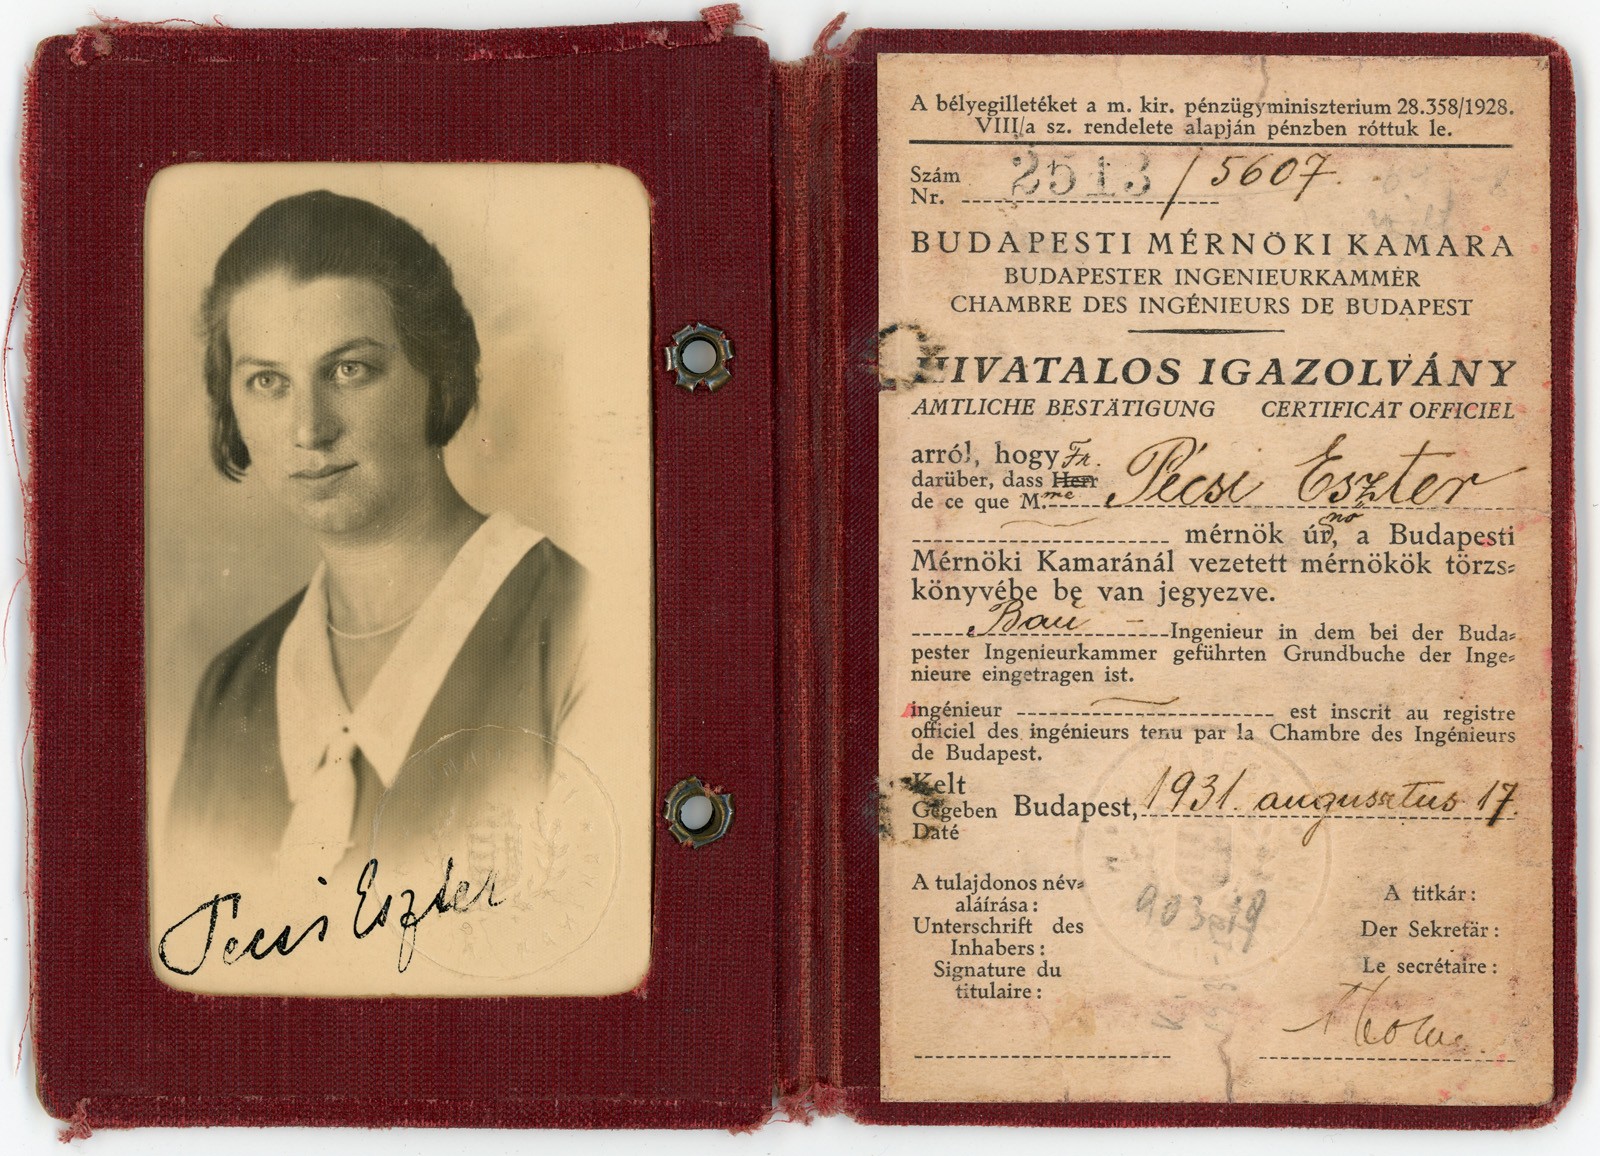 Pécsi Eszter
A bélyegilletéket a m. kir. pénzügyminiszterium 28.358/1928.
VIII/a sz. rendelete alapján pénzben róttuk le.
Szám
Nr. 2513 / 5607.
BUDAPESTI MÉRNÖKI KAMARA
BUDAPESTER INGENIEURKAMMER
CHAMBRE DES INGÉNIEURS DE BUDAPEST
HIVATALOS IGAZOLVÁNY
AMTLICHE BESTÄTIGUNG CERTIFICAT OFFICIEL
arról, hogy Fr.
darüber, dass Herr Pécsi Eszter
de ce que M.me
mérnök úrnő, a Budapesti
Mérnöki Kamaránál vezetett mérnökök törzs=
könyvébe be van jegyezve.
Bau - Ingenieur in dem bei der Buda=
pester Ingenieurkammer geführten Grundbuche der Inge=
nieure eingetragen ist.
ingénieur est inscrit au registre
officiel des ingénieurs tenu par la Chambre des Ingénieurs
de Budapest.
Kelt
Gegeben Budapest, 1931. augusztus 17.
Daté
A tulajdonos név=
aláírása:
Unterschrift des
Inhabers:
Signature du
titulaire:
A titkár:
Der Sekretär:
Le secrétaire: